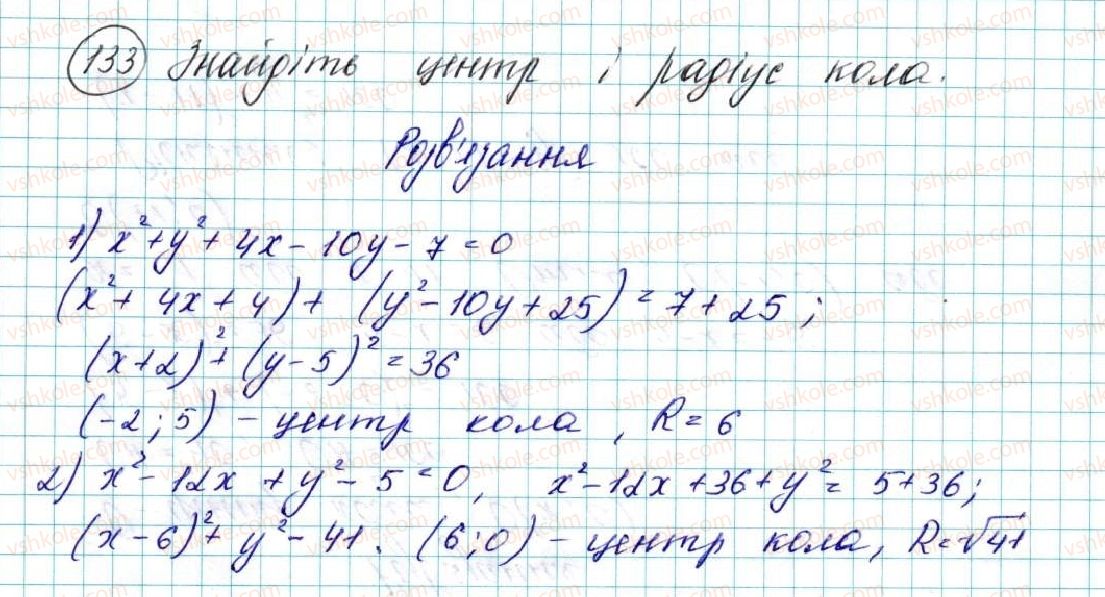 133 Знайдіть центр і радіус кола.
Розв'язання
1) x²+y²+4x-10y-7=0
(x²+4x+4)+(y²-10y+25)=7+25;
(x+2)²+(y-5)²=36
(-2;5)-центр кола, R=6
2) x²-12x+y²-5=0, x²-12x+36+y²=5+36;
(x-6)²+y²-41. (6;0)-центр кола, R=√41